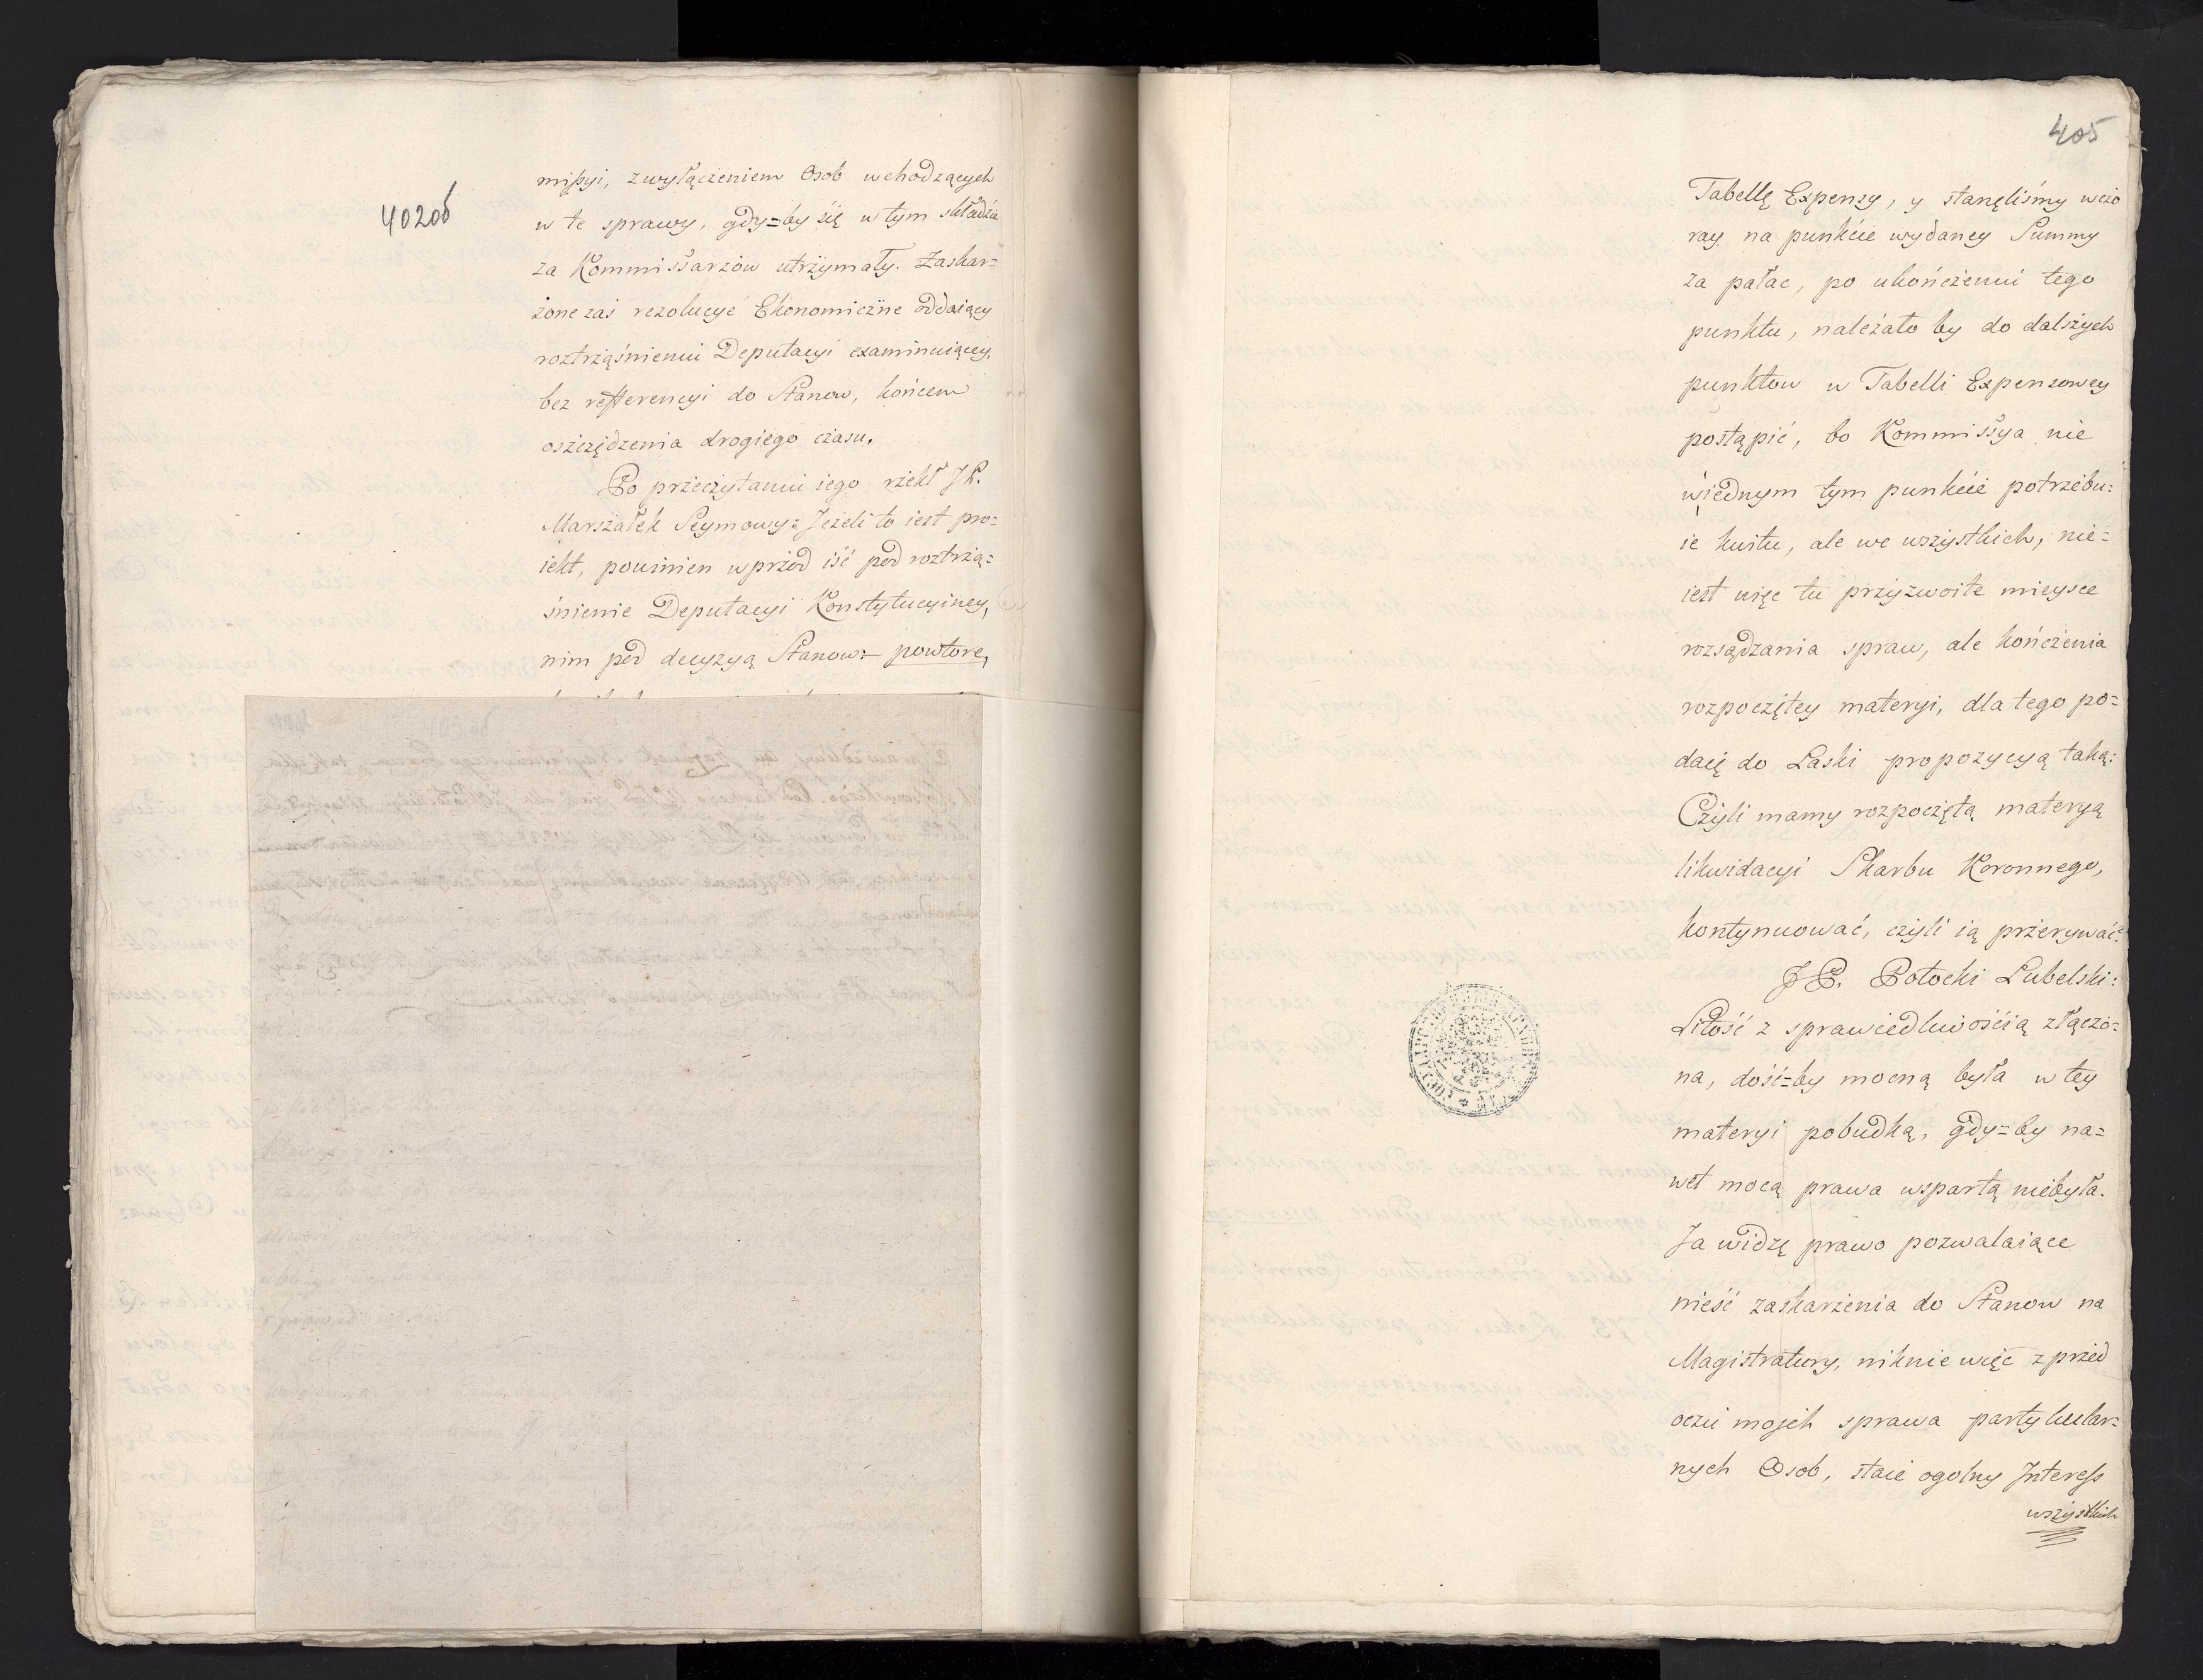 402об
missyi, z wyłączeniem Osob wchodzących
w te sprawy, gdy=by się w tym składzie
za Kommissarzow utrzymały. Zaskar=
żone zaś rezolucye Ekonomiczne oddaiący
roztrząśnieniu Deputacyi examinuiącey,
bez refferencyi do Stanow, końcem
oszczędzenia drogiego czasu.
Po przeczytaniu iego rzekł JP.
Marszałek Seymowy: Jeżeli to iest pro=
iekt, powinien wprzod iść pod roztrzą=
śnienie Deputacyi Konstytucyiney,
nim pod decyzyą Stanow:– powtore,
405
Tabellę Expensy, y stanęliśmy wczo
ray na punkcie wydaney Summy
za pałac, po ukończeniu tego
punktu, należało by do dalszych
punktow w Tabelli Expensowey
postąpić, bo Kommissya nie
w iednym tym punkcie potrzebu=
ie kwitu, ale we wszystkich, nie=
iest więc tu przyzwoite mieysce
rozsądzania spraw, ale kończenia
rozpoczętey materyi, dla tego po=
daię do Laski propozycyą taką:
Czyli mamy rozpoczętą materyą
likwidacyi Skarbu Koronnego,
kontynuować, czyli ią przerywać?
JP. Potocki Lubelski:
Litość z sprawiedliwością złączo=
na, dość=by mocną była w tey
materyi pobudką, gdy=by na=
wet mocą prawa wspartą niebyła.
Ja widzę prawo pozwalaiące
nieść zaskarżenia do Stanow na
Magistratury, niknie więc z przed
oczu moich sprawa partykular=
nych Osob, staie ogolny Interess
wszystkich